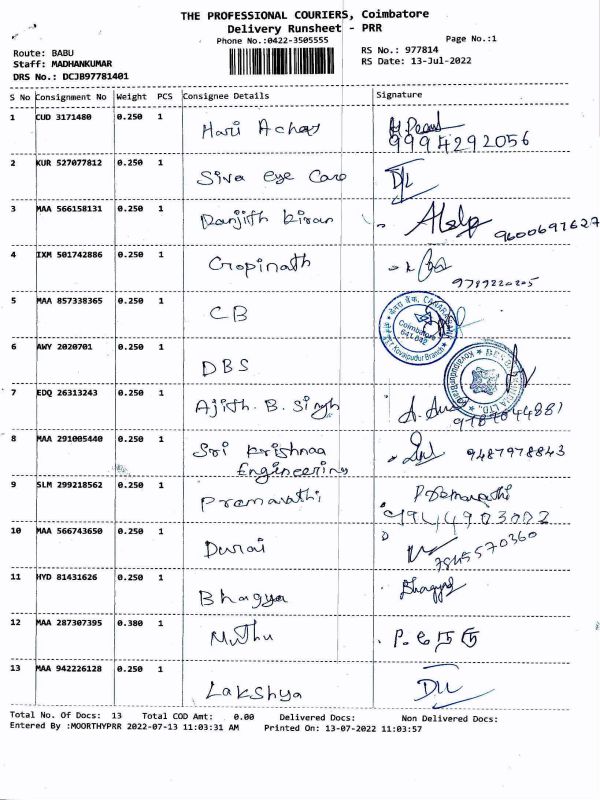 THE PROFESSIONAL COURIERS, Coimbatore
Delivery Runsheet - PRR
Phone No.:0422-3505555
Page No.:1
Route: BABU
RS No.: 977814
Staff: MADHANKUMAR
RS Date: 13-Jul-2022
DRS No.: DCJB97781401
S No Consignment No Weight PCS Consignee Details Signature
1 CUD 3171480 0.250 1 Hari Achay
9994292056
2 KUR 527077812 0.250 1 Siva eye Care
3 MAA 566158131 0.250 1 Ranjith kiran
9600697627
4 IXM 501742886 0.250 1 Gropinath
5 MAA 857338365 0.250 1 CB
CANARA BANK
Coimbatore
641 042
Kovaipudur Branch
6 AWY 2020701 0.250 1 DBS
7 EDQ 26313243 0.250 1 Ajith. B. Singh
9787044881
8 MAA 291005440 0.250 1 Sri Krishnaa
Engineering
9487978843
9 SLM 299218562 0.250 1 Premavathi
P. Premavathi
9944903002
10 MAA 566743650 0.250 1 Durai
7845570360
11 HYD 81431626 0.250 1 Bhagya Bhagya
12 MAA 287307395 0.380 1 Muthu
13 MAA 942226128 0.250 1 Lakshya
Total No. Of Docs: 13 Total COD Amt: 0.00 Delivered Docs: Non Delivered Docs:
Entered By :MOORTHYPRR 2022-07-13 11:03:31 AM Printed On: 13-07-2022 11:03:57